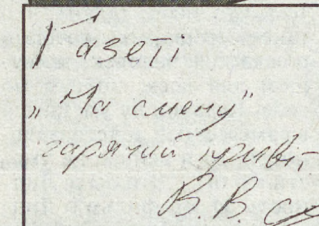 Газеті
„На смену"
гарячий привіт
В. В.